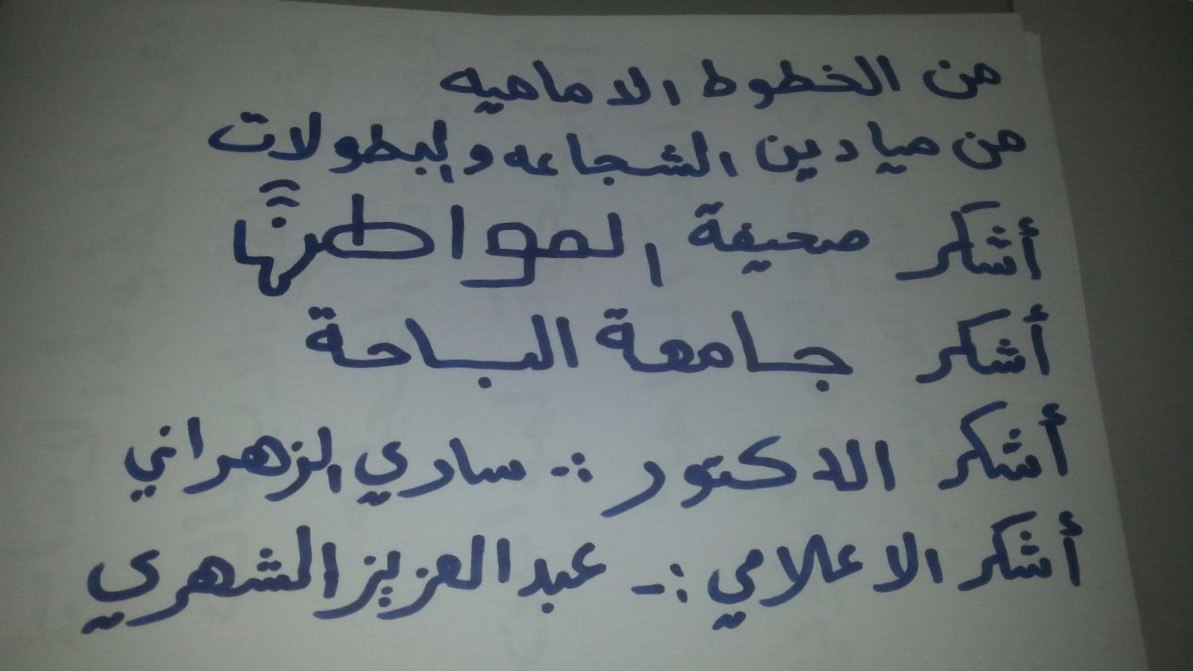 من الخطوط الاماميه
من ميادين الشجاعه والبطولات
أشكر صحيفة المواطن
أشكر جامعة الباحة
أشكر الدكتور :- ساري الزهراني
أشكر الاعلامي :- عبدالعزيز الشهري